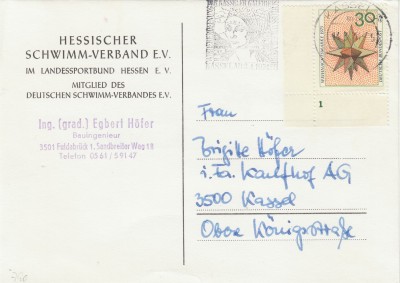 HESSISCHER
SCHWIMM-VERBAND E.V.
IM LANDESSPORTBUND HESSEN E. V.
MITGLIED DES
DEUTSCHEN SCHWIMM-VERBANDES E.V.
Ing. (grad.) Egbert Höfer
Bauingenieur
3501 Fuldabrück 1,
Telefon 0561/59147
30
1
Frau
Brigitte Höfer
i. Fa. Kaufhof AG
3500 Kassel
Obere Königsstraße